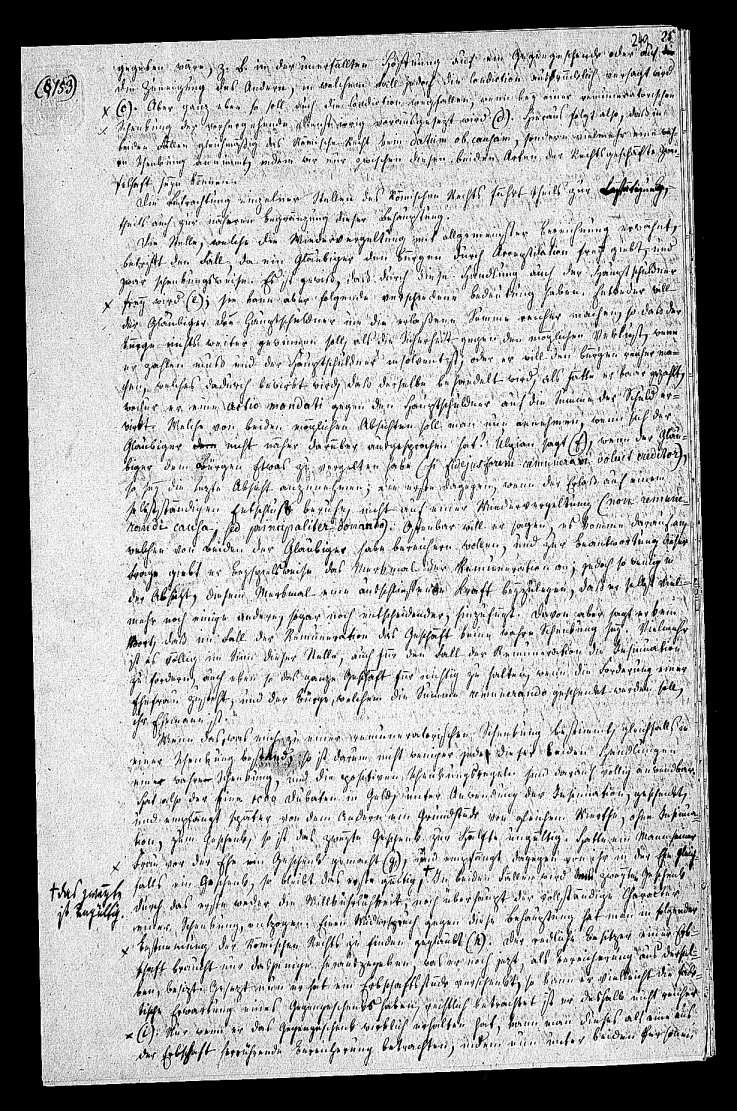 240 25
(§153)
gegeben wäre, z. B. in der unerfüllten Hoffnung auf ein Gegengeschenk oder auf
die Zuneigung des Andern, in welchem Fall jedoch die Condiction ausdrücklich versagt wird
(c). Aber ganz eben so soll auch die Condiction wegfallen, wenn bey einer remuneratorischen
Schenkung der vorhergehende Dienst irrig vorausgesetzt wird (d). Hieraus folgt also, daß in
beiden Fällen gleichmäßig das Römische Recht kein datum ob causam, sondern vielmehr eine wah-
re Schenkung annimmt, indem wir nur zwischen diesen beiden Arten der Rechtsgeschäfte zwei-
felhaft seyn können.
Die Betrachtung einzelner Stellen des Römischen Rechts führt theils zur Bestätigung,
theils auch zur näheren Begränzung dieser Behauptung.
Die Stelle, welche die Wiedervergeltung mit allgemeinster Bezeichnung erwähnt,
betrifft den Fall da ein Gläubiger den Bürgen durch Acceptilation frey giebt, und
zwar schenkungsweise. Es ist gewiß, daß durch diese Handlung auch der Hauptschuldner
frey wird (e); sie kann aber folgende verschiedene Bedeutung haben. Entweder will
der Gläubiger den Hauptschuldner um die erlaßene Summe reicher machen, so daß der
Bürge nichts weiter gewinnen soll, als die Sicherheit gegen den möglichen Verlust, wenn
er zahlen muß und der Hauptschuldner insolvent ist; oder er will den Bürgen reicher ma-
chen, welches dadurch bewirkt wird, daß derselbe behandelt wird, als hätte er baar gezahlt,
weshalb er eine actio mandati gegen den Hauptschuldner auf die Summe der Schuld er-
wirbt. Welche von beiden möglichen Absichten soll man nun annehmen, wenn sich der
Gläubiger nicht näher darüber ausgesprochen hat? Ulpian sagt (f), wenn der Gläu-
biger dem Bürgen Etwas zu vergelten habe (si fidejussorem remunerari voluit creditor),
so sey die letzte Absicht anzunehmen; die erste dagegen, wenn der Erlaß auf einem
selbstständigen Entschluß beruhe, nicht auf einer Wiedervergeltung (non remune-
randi causa, sed principaliter donando). Offenbar will er sagen, es komme darauf an,
welchen von beiden der Gläubiger habe bereichern wollen, und zur Beantwortung dieser
Frage giebt er beyspielsweise das Merkmal der Remuneration an, jedoch so wenig in
der Absicht, diesem Merkmal eine ausschließende Kraft beyzulegen, daß er selbst viel-
mehr noch einige andere, sogar noch entscheidender, hinzufügt. Davon aber sagt er kein
Wort, daß im Fall der Remuneration das Geschäft keine wahre Schenkung sey. Vielmehr
ist es völlig im Sinn dieser Stelle, auch für den Fall der Remuneration die Insinuation
zu fordern, auch eben so das ganze Geschäft für nichtig zu halten, wenn die Forderung einer
Ehefrau zusteht, und der Bürge, welchem die Summe remunerando geschenkt werden soll,
ihr Ehemann ist.
Wenn das, was mich zu einer remuneratorischen Schenkung bestimmt, gleichfalls in
einer Schenkung bestand, so ist darum nicht weniger jede dieser beiden Handlungen
eine wahre Schenkung, und die positiven Schenkungsregeln sind darauf völlig anwendbar.
Hat also der Eine 1000 Dukaten in Geld, unter Anwendung der Insinuation, geschenkt,
und empfängt später von dem Andern ein Grundstück von gleichem Werthe, ohne Insinua-
tion, zum Geschenk, so ist das zweyte Geschenk zur Hälfte ungültig. Hatte ein Mann seiner
Frau vor der Ehe ein Geschenk gemacht (g), und empfängt dagegen von ihr in der Ehe gleich-
falls ein Geschenk, so bleibt das erste gültig, † In beiden Fällen wird dem zweyten Geschenk
† das zweyte
ist ungültig.
durch das erste weder die Willkührlichkeit, noch überhaupt der vollständige Character
einer Schenkung, entzogen. Einen Widerspruch gegen diese Behauptung hat man in folgender
Bestimmung des Römischen Rechts zu finden geglaubt (h). Der redliche Besitzer einer Erb-
schaft braucht nur dasjenige herauszugeben was er noch jetzt, als Bereicherung aus dersel-
ben, besitzt. Gesetzt nun er hat ein Erbschaftsstück verschenkt, so kann er vielleicht die fak-
tische Erwartung eines Gegengeschenks haben, rechtlich betrachtet ist er deshalb nicht reicher
(i). Nur wenn er das Gegengeschenk wirklich erhalten hat, kann man dieses als eine aus
der Erbschaft herrührende Bereicherung betrachten, indem nun unter beiden Personen